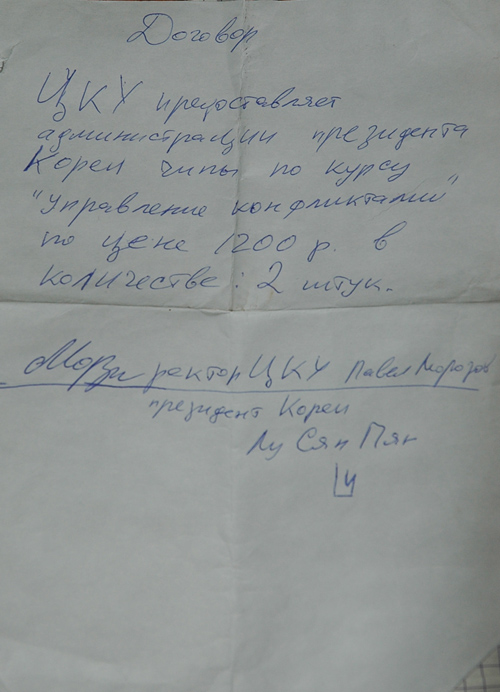 Договор
ЦКУ предоставляет
администрации президента
Кореи чипы по курсу
"Управление конфликтами"
по цене 1200 р. в
количестве: 2 штук.
ректор ЦКУ Павел Морозов
президент Кореи
Лу Сян Пян